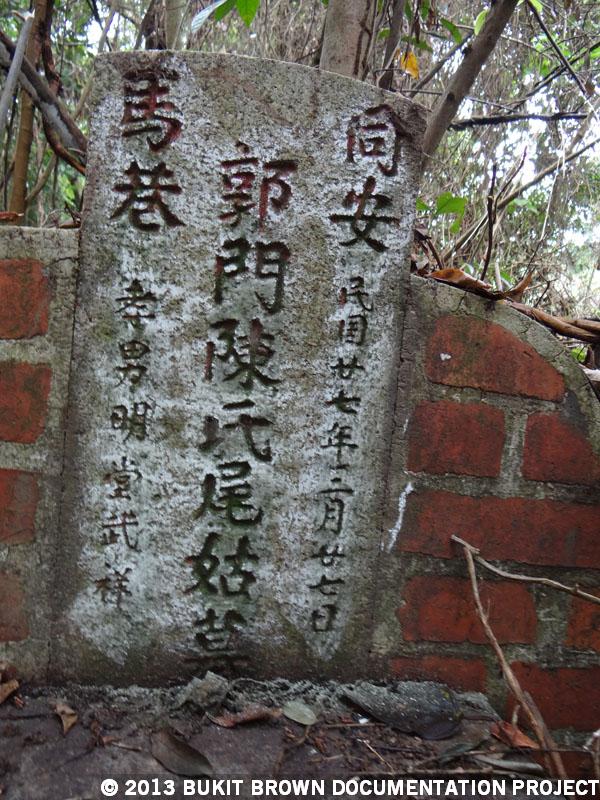 同安
民國廿七年三月廿七日
郭門陳氏尾姑墓
馬巷
孝男明堂武祥
© 2013 BUKIT BROWN DOCUMENTATION PROJECT